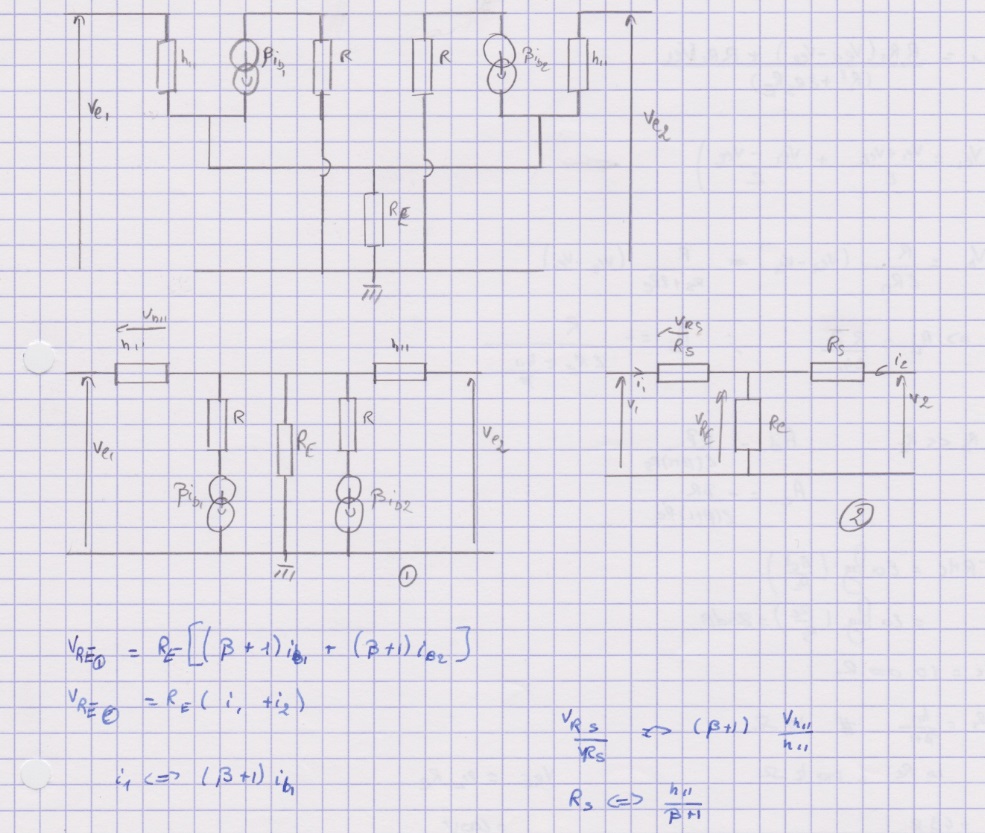 h, βib1 R R βib2 h11
Ve1 Ve2
RE
Vh11
h11 h11
R RE R
Ve1 Ve2
βib1 βib2
①
VRS
RS RS
i1 i2
V1 VRE Re V2
②
VRE① = RE [(β+1) ib1 + (β+1) iB2]
VRE② = RE ( i1 + i2)
i1 <=> (β+1) ib1
VRS/RS <-> (β+1) Vh11/h11
RS <=> h11/β+1